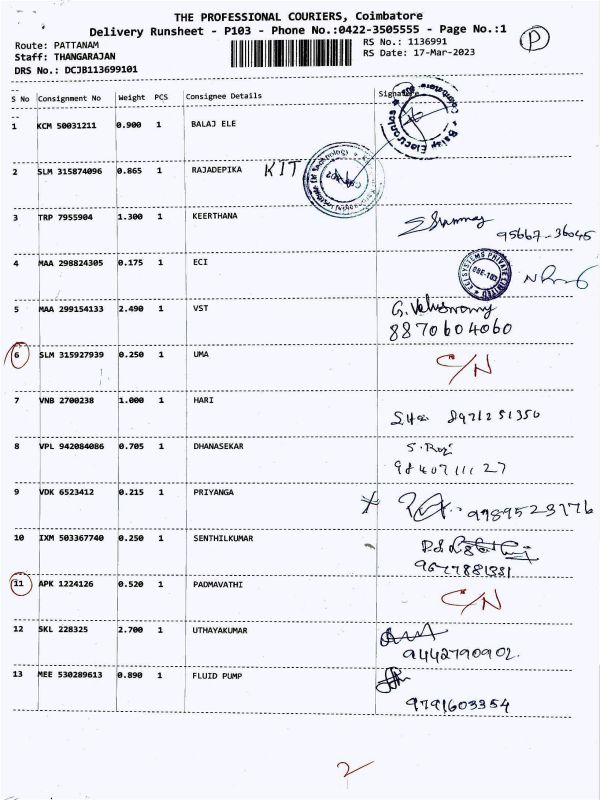 THE PROFESSIONAL COURIERS, Coimbatore
Delivery Runsheet - P103 - Phone No.:0422-3505555 - Page No.:1
P
Route: PATTANAM
RS No.: 1136991
Staff: THANGARAJAN
RS Date: 17-Mar-2023
DRS No.: DCJB113699101
S No Consignment No Weight PCS Consignee Details Signature
1 KCM 50031211 0.900 1 BALAJ ELE
2 SLM 315874096 0.865 1 RAJADEPIKA KIT
3 TRP 7955904 1.300 1 KEERTHANA
95667-36045
4 MAA 298824305 0.175 1 ECI
ECI SYSTEMS PRIVATE LIMITED
CBE-103
5 MAA 299154133 2.490 1 VST
8870604060
6 SLM 315927939 0.250 1 UMA C/N
7 VNB 2700238 1.000 1 HARI
8971251350
8 VPL 942084086 0.705 1 DHANASEKAR
9840711127
9 VDK 6523412 0.215 1 PRIYANGA
9989523776
10 IXM 503367740 0.250 1 SENTHILKUMAR
9677881331
11 APK 1224126 0.520 1 PADMAVATHI C/N
12 SKL 228325 2.700 1 UTHAYAKUMAR
9442790902.
13 MEE 530289613 0.890 1 FLUID PUMP
9791603354
2